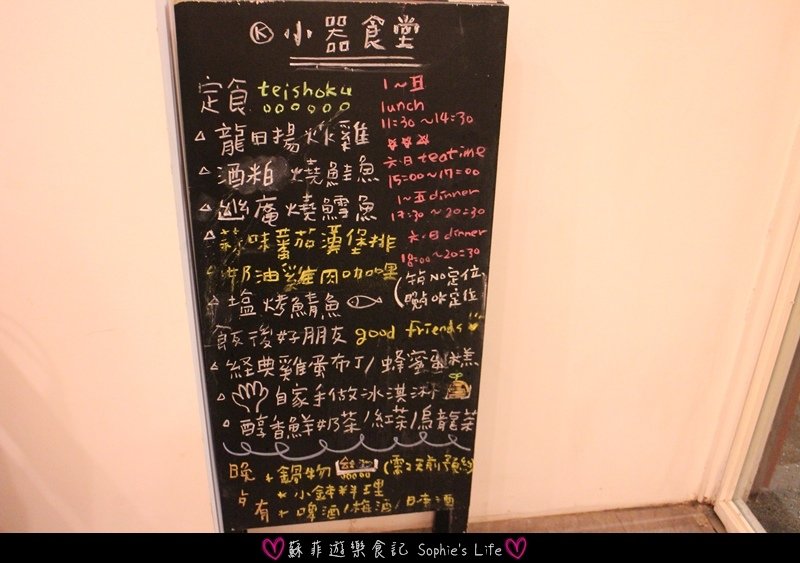 K 小器食堂
定食 teishoku
△ 龍田揚炸雞
△ 酒粕燒鮭魚
△ 幽庵燒鱈魚
△ 蘇味蕃茄漢堡排
△ 奶油雞肉咖哩
△ 塩烤鯖魚
1~五
lunch
11:30~14:30
六.日 teatime
15:00~17:00
1~五 dinner
17:30~20:30
六.日 dinner
18:00~20:30
飯後好朋友 good friends
△ 経典雞蛋布丁/蜂蜜蛋糕
△ 自家手做冰淇淋
△ 醇香鮮奶茶/紅茶/烏龍茶
晚 + 鍋物
+ 小鉢料理
有 + 啤酒/梅酒/日本酒
蘇菲遊樂食記 Sophie's Life